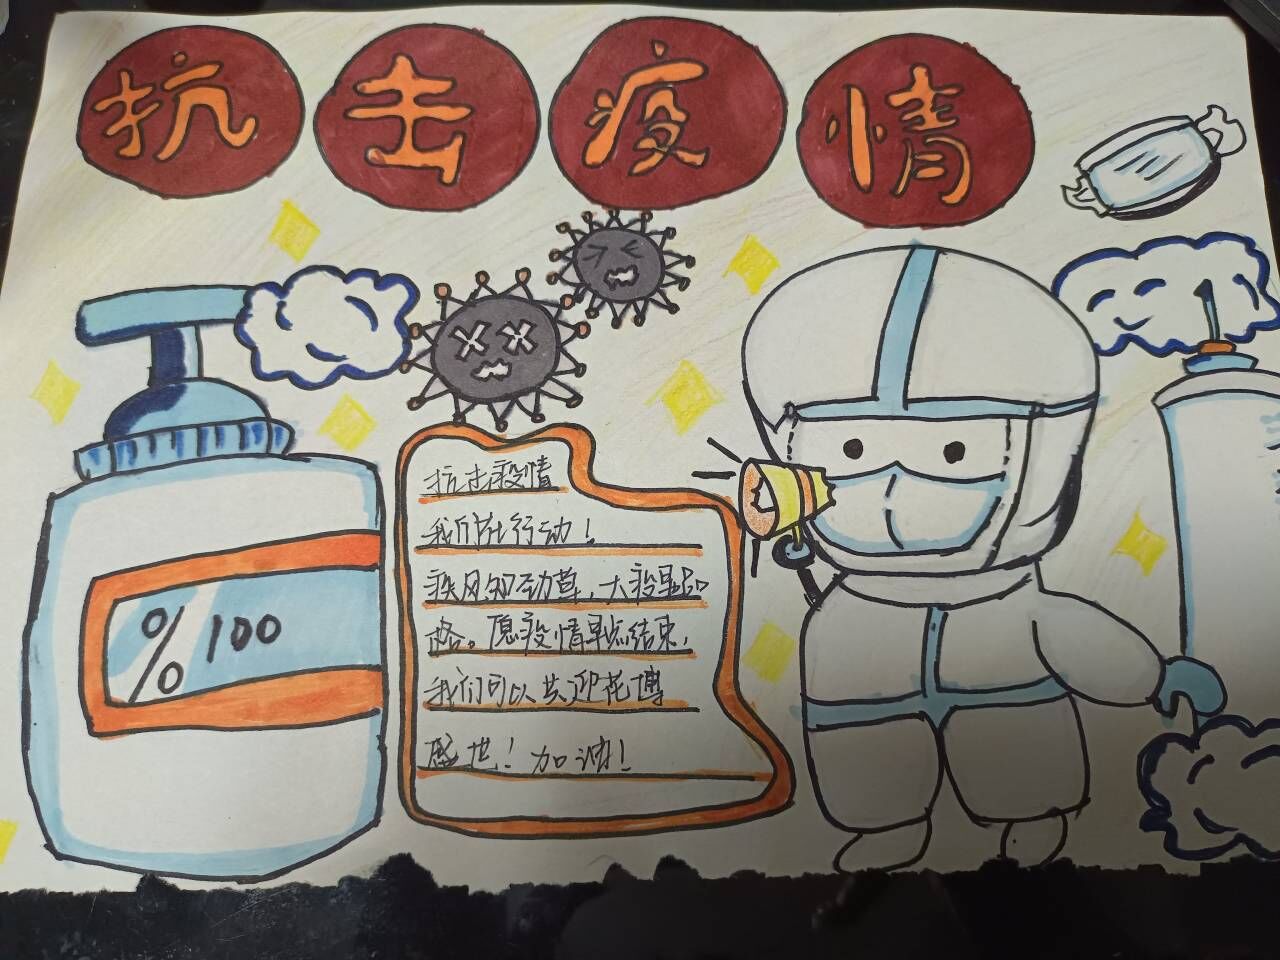 抗击疫情
%100
抗击疫情
我们在行动！
疾风知劲草，大疫显品
格。愿疫情早点结束，
我们可以共迎花博
盛世！加油！